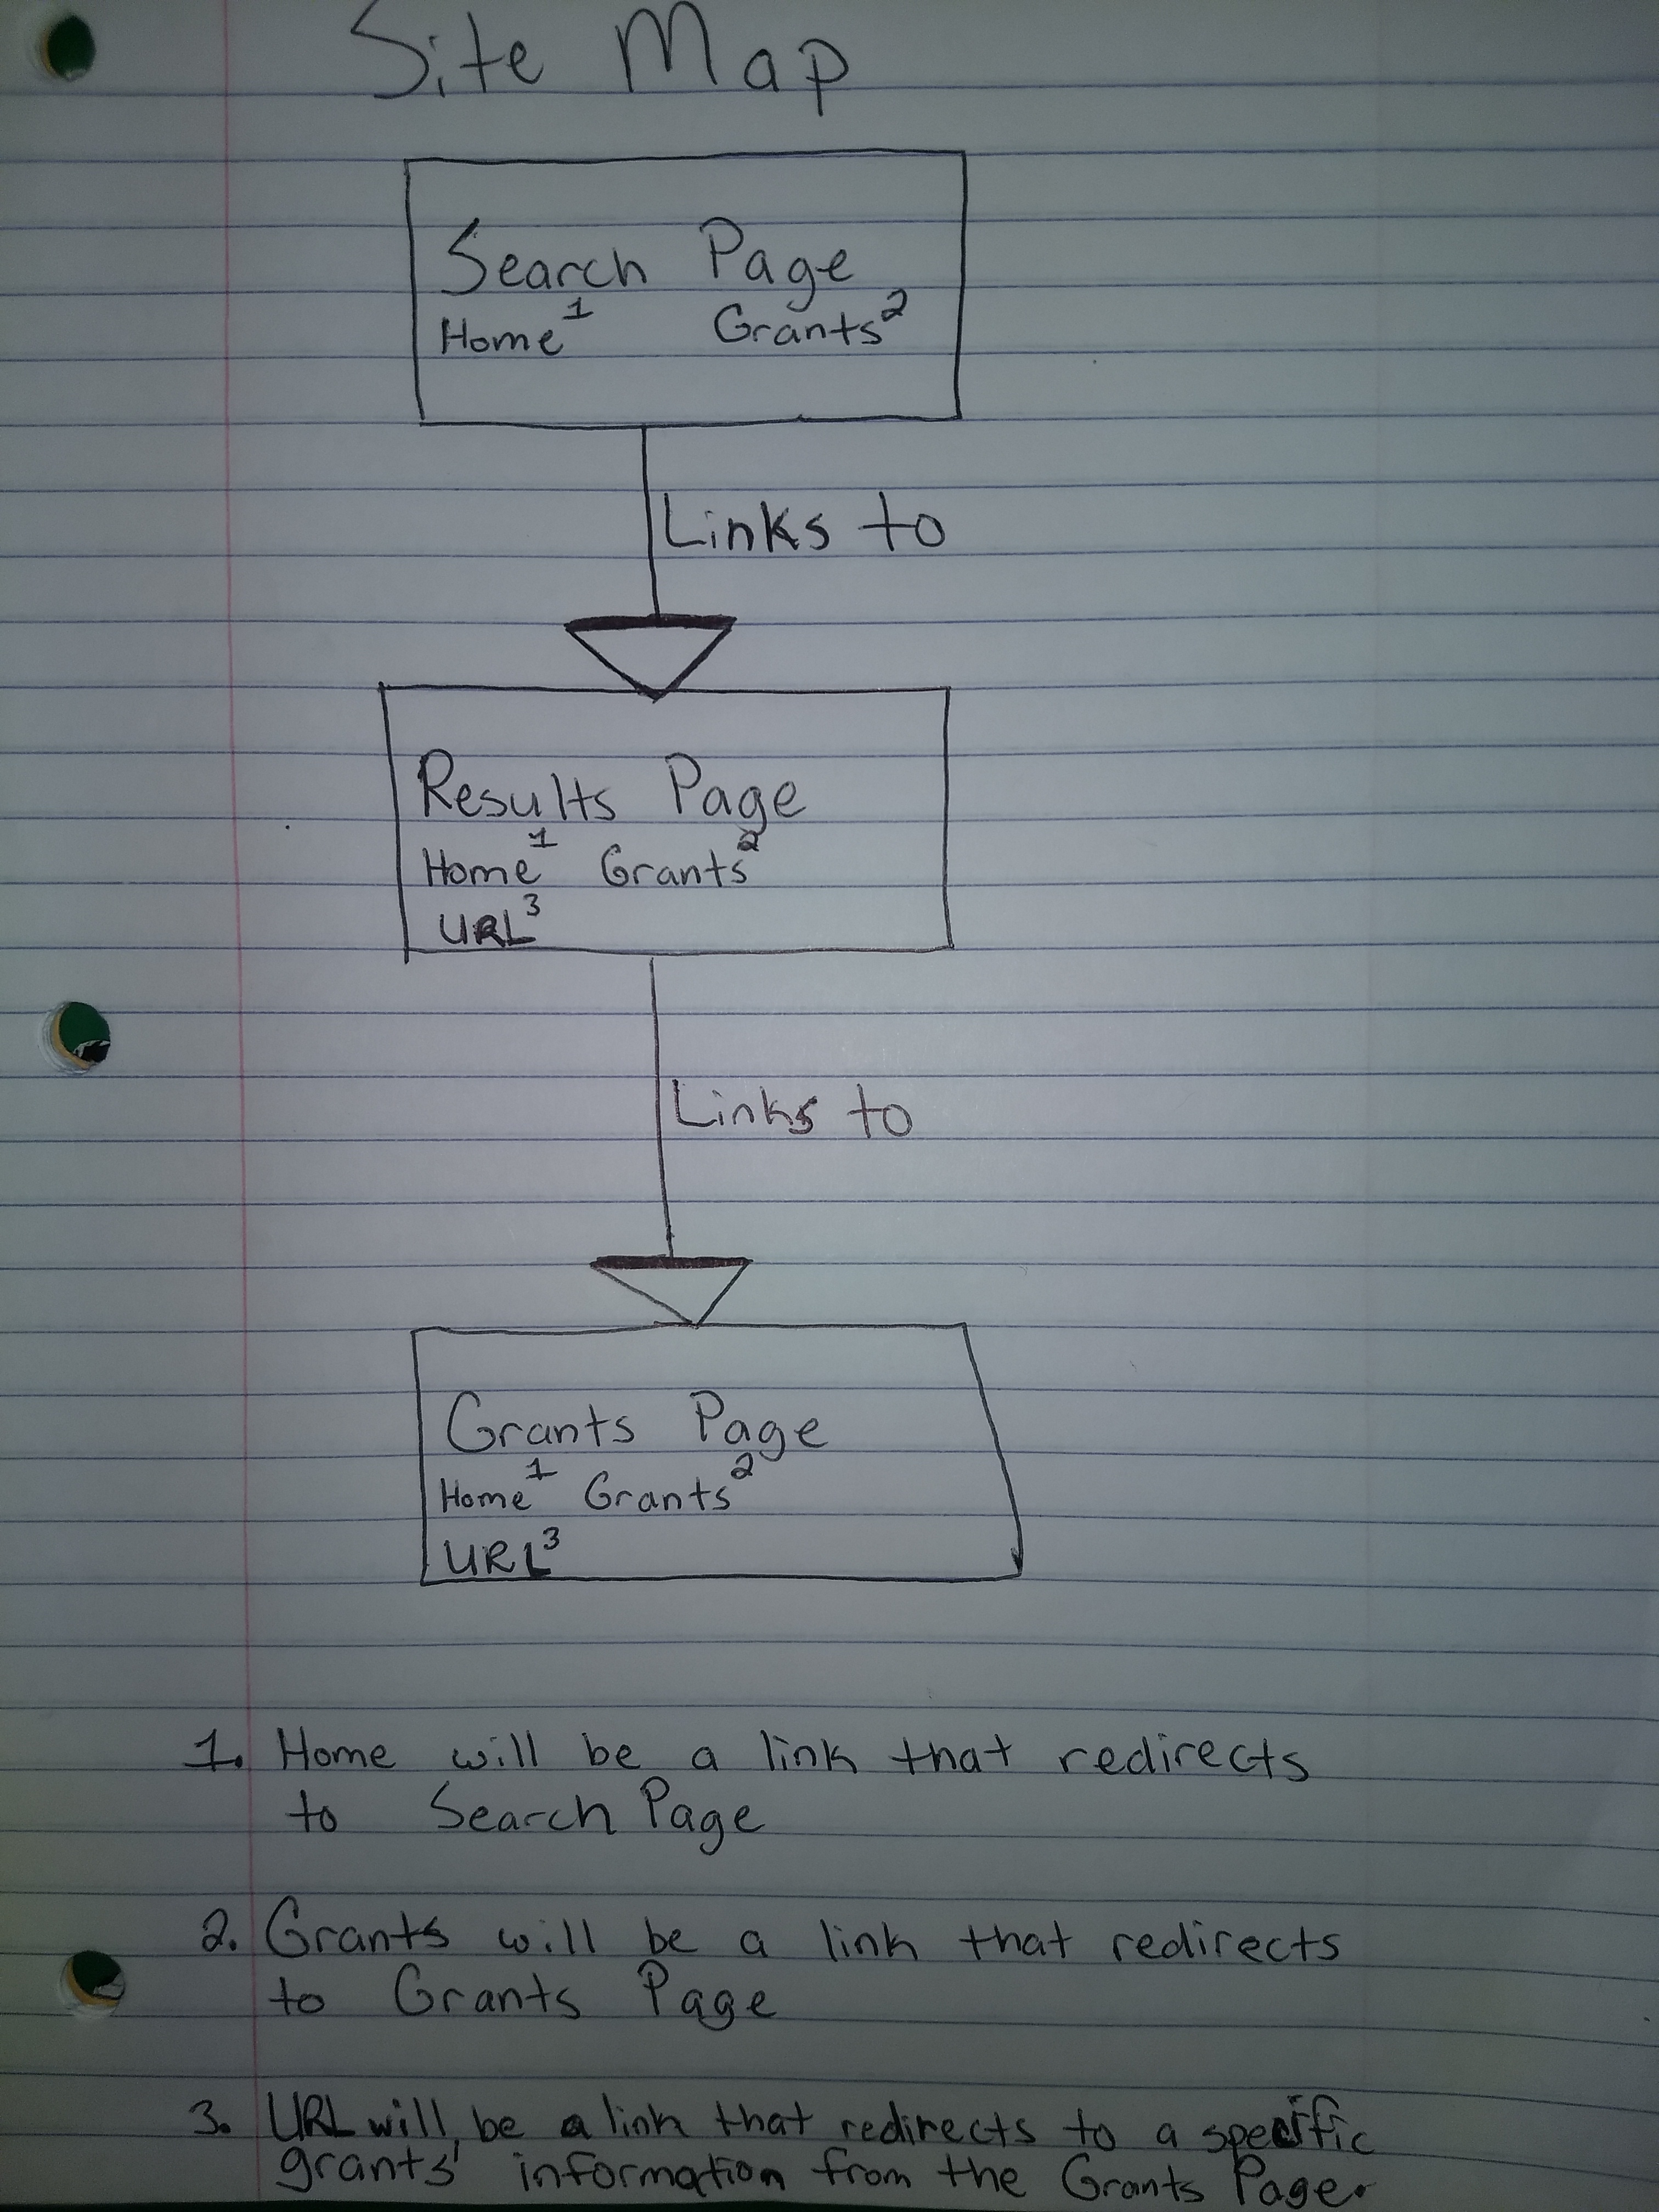 Site Map
Search Page
Home¹ Grants²
Links to
Results Page
Home¹ Grants²
URL³
Links to
Grants Page
Home¹ Grants²
URL³
1. Home will be a link that redirects
to Search Page
2. Grants will be a link that redirects
to Grants Page
3. URL will be a link that redirects to a specific
grants' information from the Grants Page.